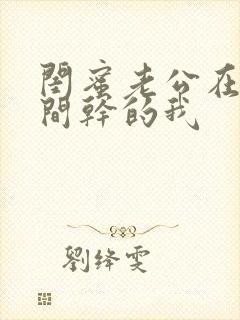 閨蜜老公在
間幹的我
劉絳雯